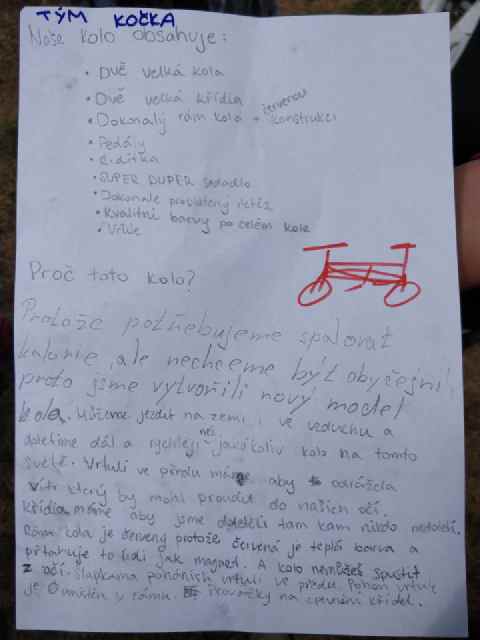 TÝM KOČKA
Naše kolo obsahuje:
• Dvě velká kola
• Dvě velká křídla
• Dokonalý rám kola + červenou konstrukci
• Pedály
• Řidítka
• SUPER DUPER sedadlo
• Dokonale promazaný řetěz
• Kvalitní barvy po celém kole
• Vrtule
Proč toto kolo?
Protože potřebujeme spalovat
kalorie, ale nechceme být obyčejní,
proto jsme vytvořili nový model
kola. Můžeme jezdit na zemi i ve vzduchu a
doletíme dál a rychleji než jakékoliv kolo na tomto
světě. Vrtuli ve předu máme aby odrážela
vítr který by mohl proudit do našich očí.
Křídla máme aby jsme doletěli tam kam nikdo nedoletí.
Rám kola je červený protože červená je teplá barva a
přitahuje to lidi jak magned. A kolo nemůžeš spustit
z očí. Šlapkama poháníš vrtuli ve předu. Pohon vrtule
je umístěn v rámu. na křídel.